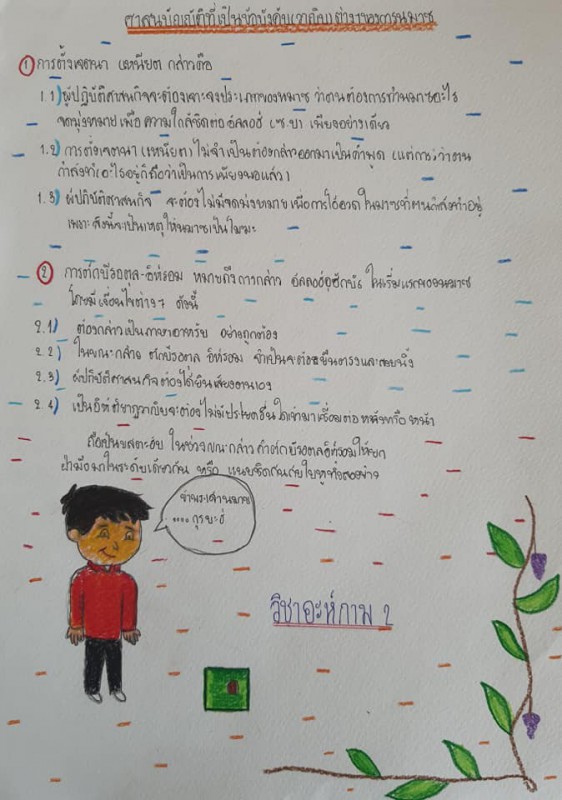 ศาสนบัญญัติที่เป็นข้อบังคับ(วาญิบ)ต่างๆของการนมาซ
① การตั้งเจตนา (เหนียต) กล่าวคือ
1.1) ผู้ปฏิบัติศาสนกิจจะต้องเจาะจงประเภทของนมาซ ว่าตนต้องการทำนมาซอะไร
จุดมุ่งหมาย เพื่อ ความใกล้ชิดต่ออัลลอฮ์ (ซ.บ) เพียงอย่างเดียว
1.2) การตั้งเจตนา (เหนียต) ไม่จำเป็นต้องกล่าวออกมาเป็นคำพูด (แต่การรู้ว่าตน
กำลังทำอะไรอยู่ก็ถือว่าเป็นการเพียงพอแล้ว)
1.3) ผู้ปฏิบัติศาสนกิจ จะต้องไม่มีจุดมุ่งหมาย เพื่อการโอ้อวด ในนมาซที่ตนกำลังทำอยู่
เพราะสิ่งนี้จะเป็นเหตุให้นมาซเป็นโมฆะ
② การตักบีรอตุล-อิห์รอม หมายถึงการกล่าว อัลลอฮุอักบัร ในเริ่มแรกของนมาซ
โดยมีเงื่อนไขต่างๆ ดังนี้
2.1) ต้องกล่าวเป็นภาษาอาหรับ อย่างถูกต้อง
2.2) ในขณะกล่าว ตักบีรอตุล อิห์รอม จำเป็นจะต้องยืนตรงและสงบนิ่ง
2.3) ผู้ปฏิบัติศาสนกิจต้องได้ยินเสียงตนเอง
2.4) เป็นอิห์ติยาฏวาญิบจะต้องไม่มีประโยคอื่นใดเข้ามาเชื่อมต่อ หลังหรือหน้า
ถือเป็นมุสตะฮับ ในช่วงขณะกล่าวคำตักบีรอตุลอิห์รอมให้ยก
ฝ่ามือมาในระดับเดียวกัน หรือ แนบชิดกันกับใบหูทั้งสองข้าง
ข้าพเจ้านมาซ
.... กุรบะฮ์
วิชาอะห์กาม 2